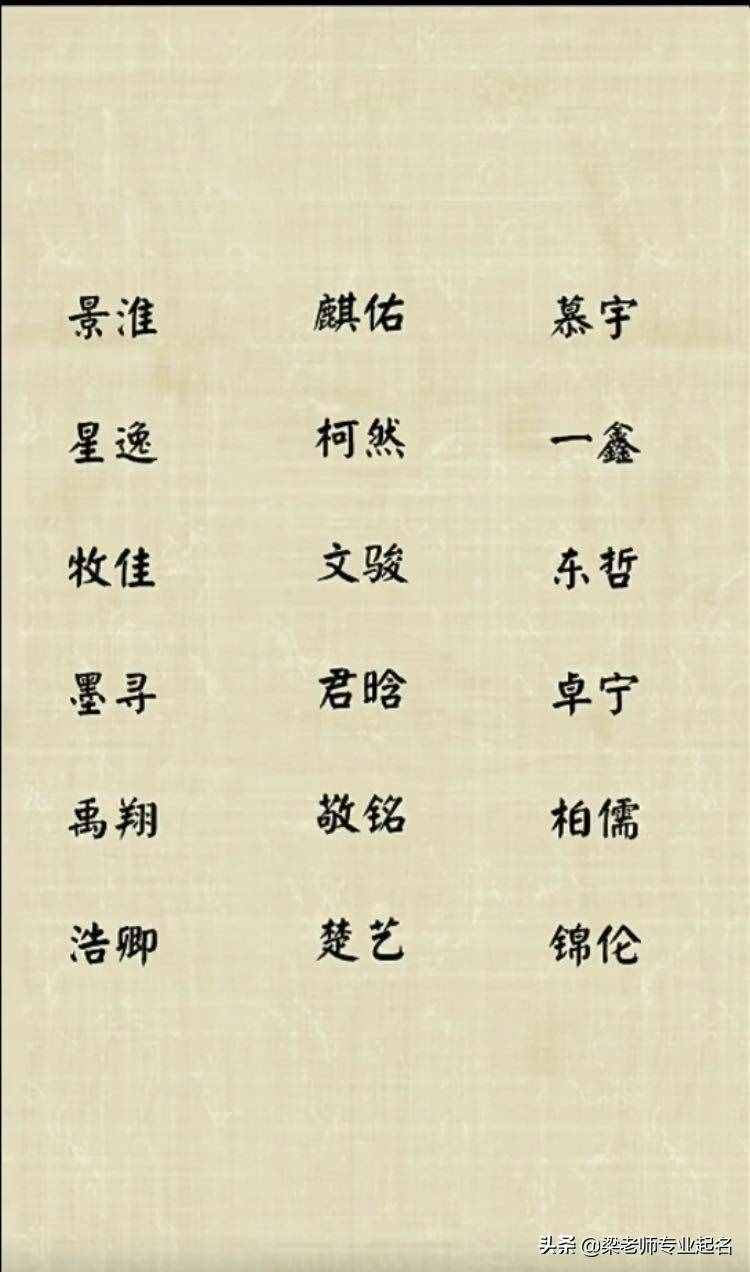 景淮 麒佑 慕宇
星逸 柯然 一鑫
牧佳 文骏 东哲
墨寻 君晗 卓宁
禹翔 敬铭 柏儒
浩卿 楚艺 锦伦
头条 @梁老师专业起名